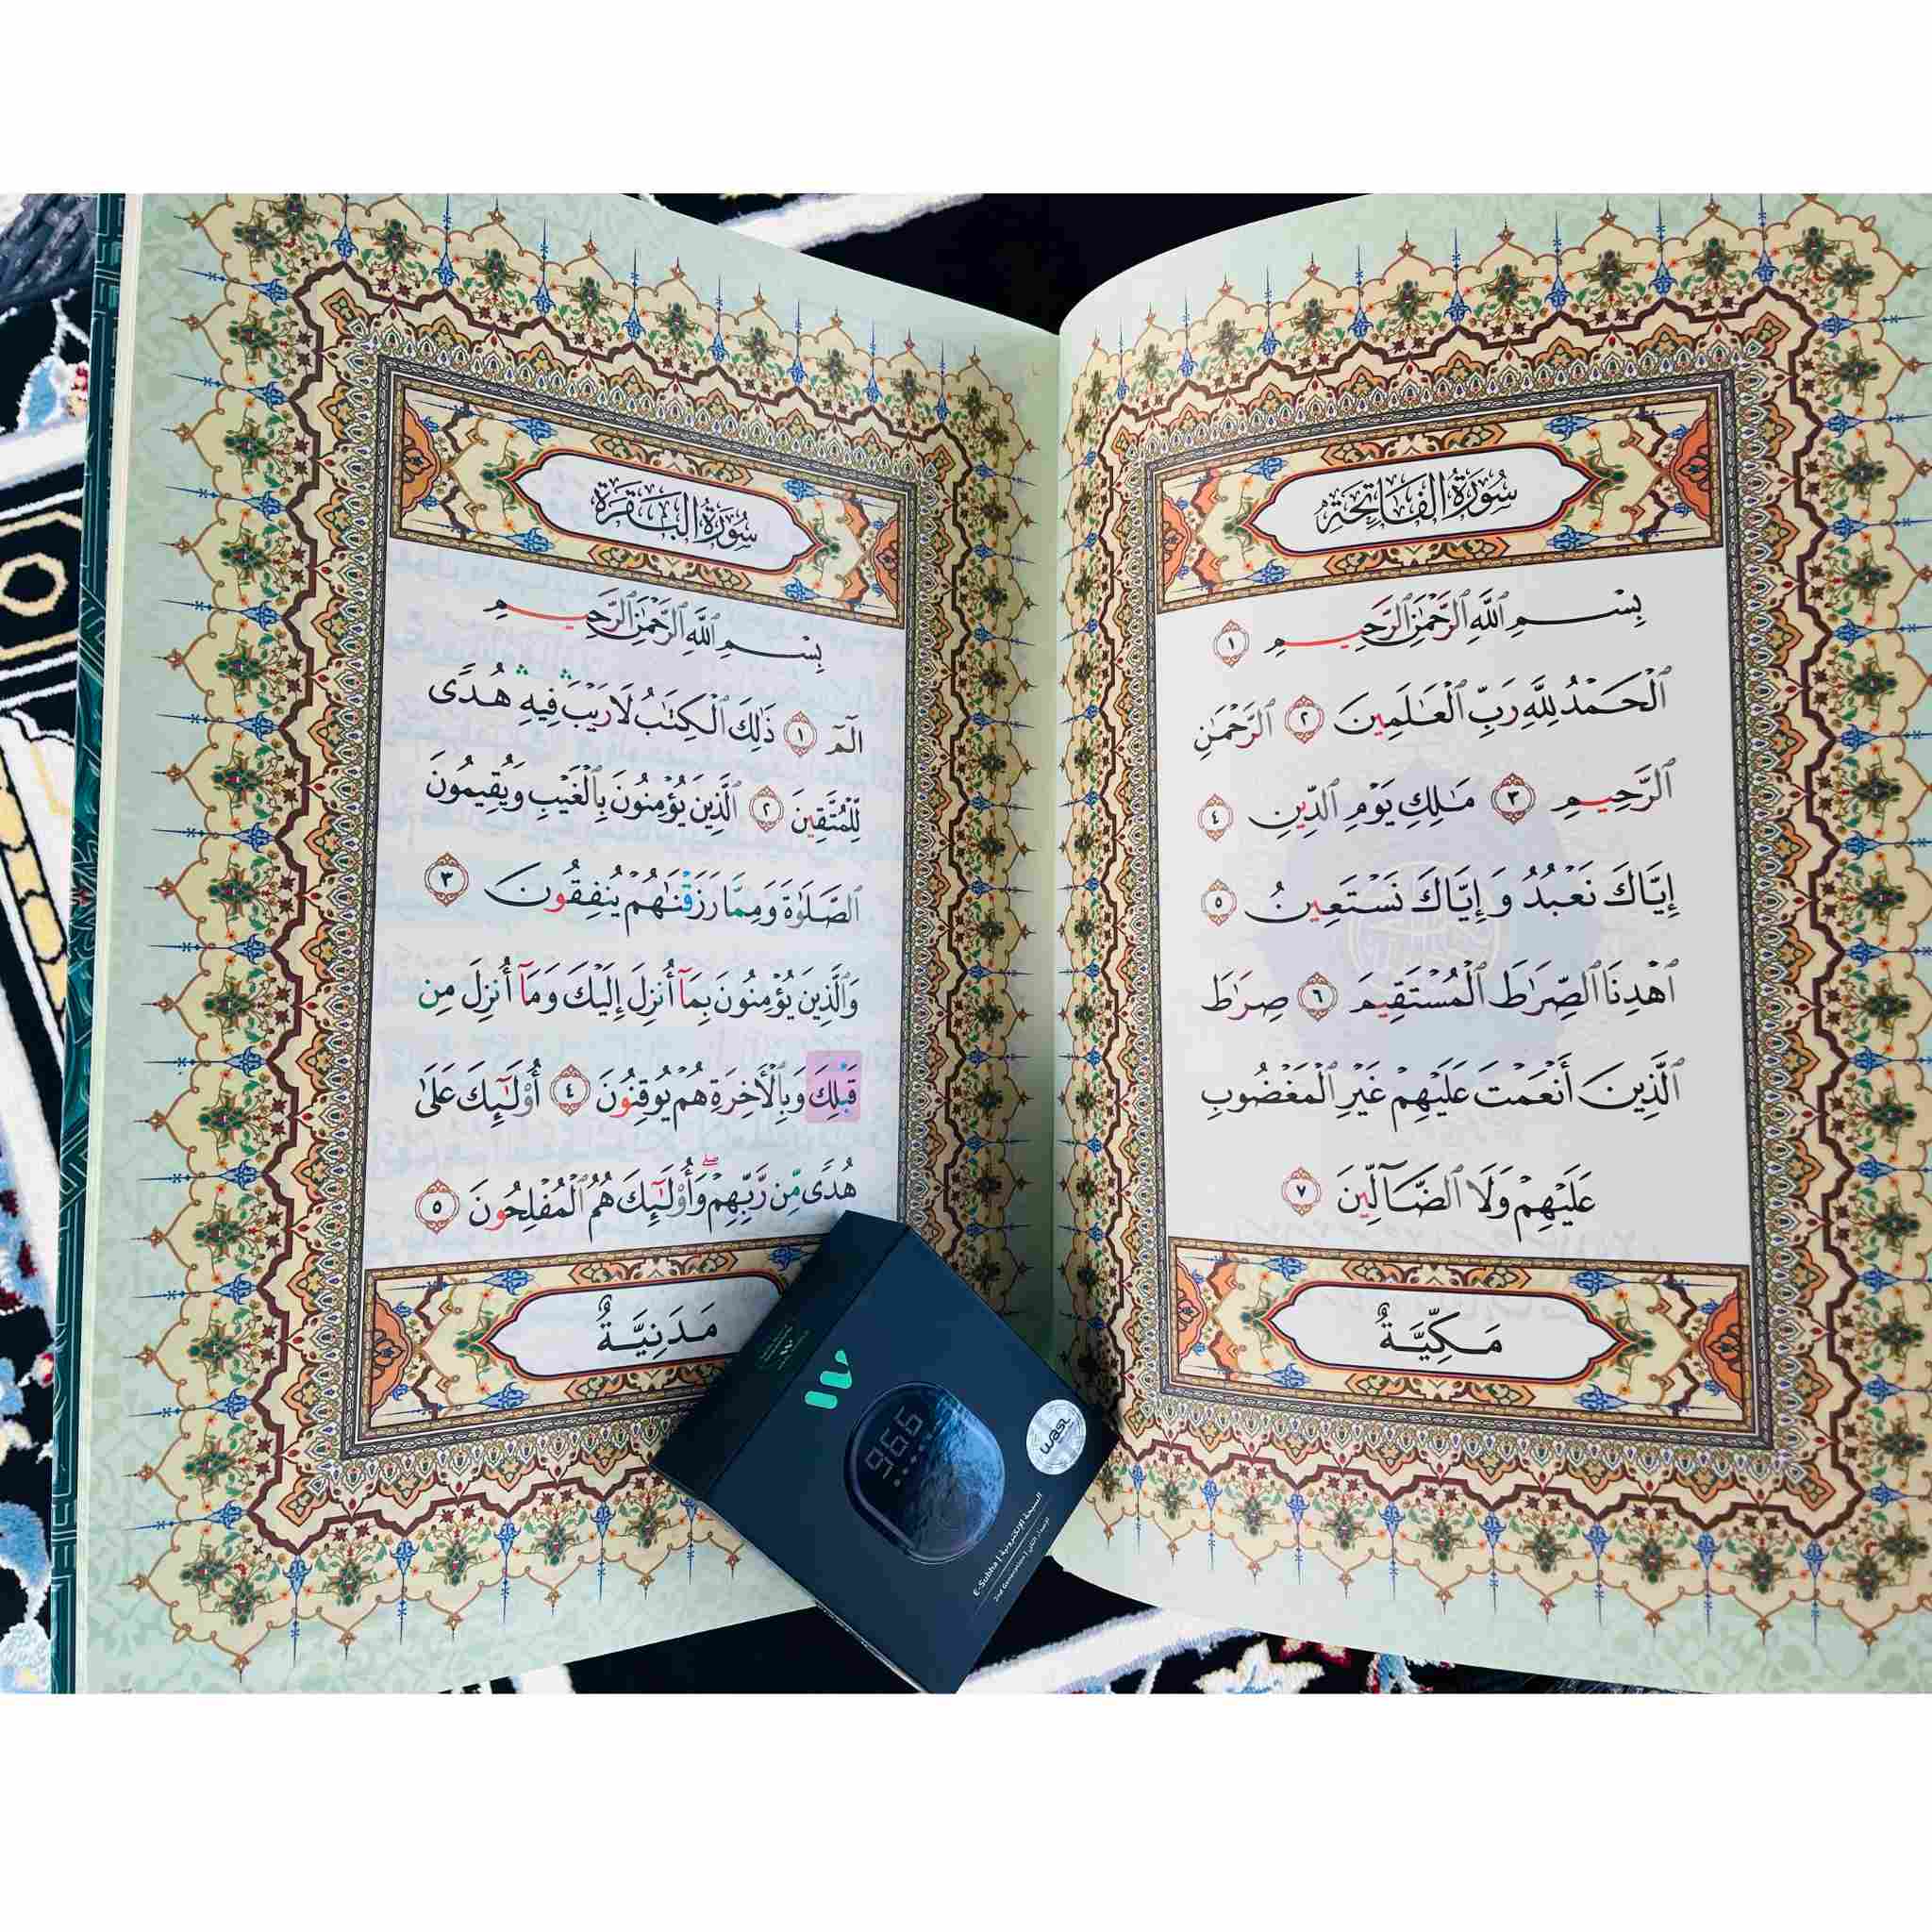 سُورَةُ الفَاتِحَةِ
بِسْمِ ٱللَّهِ ٱلرَّحْمَٰنِ ٱلرَّحِيمِ ١
ٱلْحَمْدُ لِلَّهِ رَبِّ ٱلْعَٰلَمِينَ ٢ ٱلرَّحْمَٰنِ
ٱلرَّحِيمِ ٣ مَٰلِكِ يَوْمِ ٱلدِّينِ ٤
إِيَّاكَ نَعْبُدُ وَإِيَّاكَ نَسْتَعِينُ ٥
ٱهْدِنَا ٱلصِّرَٰطَ ٱلْمُسْتَقِيمَ ٦ صِرَٰطَ
ٱلَّذِينَ أَنْعَمْتَ عَلَيْهِمْ غَيْرِ ٱلْمَغْضُوبِ
عَلَيْهِمْ وَلَا ٱلضَّآلِّينَ ٧
مَكِّيَّةٌ
سُورَةُ البَقَرَةِ
بِسْمِ ٱللَّهِ ٱلرَّحْمَٰنِ ٱلرَّحِيمِ
الٓمٓ ١ ذَٰلِكَ ٱلْكِتَٰبُ لَا رَيْبَۛ فِيهِۛ هُدًى
لِّلْمُتَّقِينَ ٢ ٱلَّذِينَ يُؤْمِنُونَ بِٱلْغَيْبِ وَيُقِيمُونَ
ٱلصَّلَوٰةَ وَمِمَّا رَزَقْنَٰهُمْ يُنفِقُونَ ٣
وَٱلَّذِينَ يُؤْمِنُونَ بِمَآ أُنزِلَ إِلَيْكَ وَمَآ أُنزِلَ مِن
قَبْلِكَ وَبِٱلْأَخِرَةِ هُمْ يُوقِنُونَ ٤ أُو۟لَٰٓئِكَ عَلَىٰ
هُدًى مِّن رَّبِّهِمْۖ وَأُو۟لَٰٓئِكَ هُمُ ٱلْمُفْلِحُونَ ٥
مَدَنِيَّةٌ
966
wast
السبحة الإلكترونية | E-Subha
الإصدار الثاني | 2nd Generation